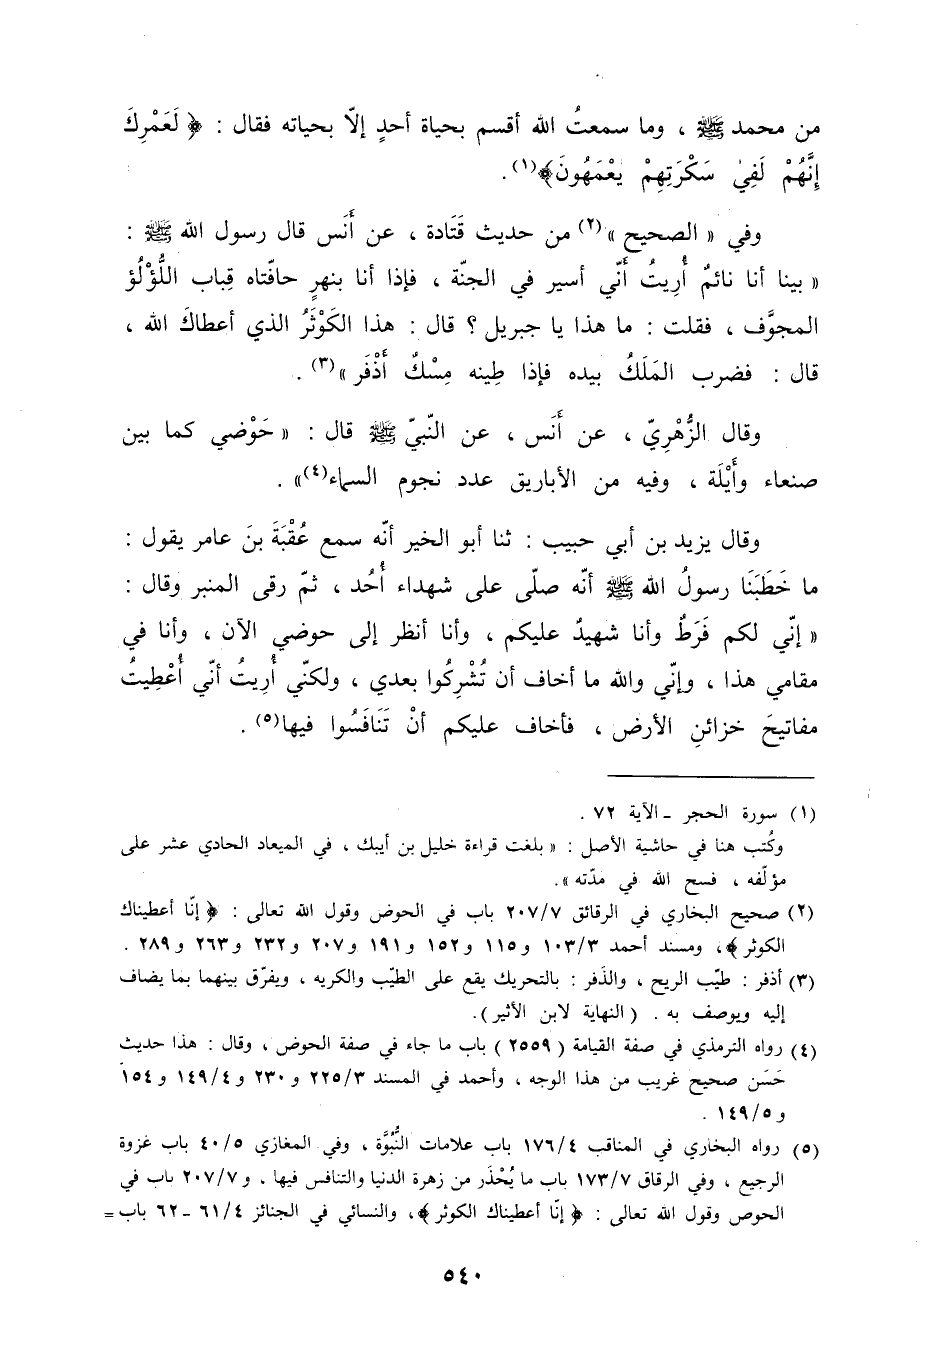 من محمد ﷺ ، وما سمعتُ الله أقسم بحياة أحدٍ إلاّ بحياته فقال : ﴿ لَعَمْرُكَ
إِنَّهُمْ لَفِيْ سَكْرَتِهِمْ يَعْمَهُونَ﴾(١) .
وفي « الصحيح »(٢) من حديث قَتَادة ، عن أَنَس قال رسول الله ﷺ :
« بينا أنا نائمٌ أُرِيتُ أَنّي أسير في الجنّة ، فإذا أنا بنهرٍ حافّتاه قِباب اللُّؤْلُؤ
المجوَّف ، فقلت : ما هذا يا جبريل ؟ قال : هذا الكَوْثَرُ الذي أعطاكَ الله ،
قال : فضرب المَلَكُ بيده فإذا طِينه مِسْكٌ أَذْفَر »(٣) .
وقال الزُّهْرِيّ ، عن أَنَس ، عن النّبيّ ﷺ قال : « حَوْضي كما بين
صنعاء وأَيْلَة ، وفيه من الأباريق عدد نجوم السماء(٤)» .
وقال يزيد بن أبي حبيب : ثنا أبو الخير أنّه سمع عُقْبَةَ بنَ عامر يقول :
ما خَطَبَنَا رسولُ الله ﷺ أنّه صلّى على شهداء أُحُد ، ثمّ رقى المنبر وقال :
« إنّي لكم فَرَطٌ وأنا شهيدٌ عليكم ، وأنا أنظر إلى حوضي الآن ، وأنا في
مقامي هذا ، وإنّي والله ما أخاف أن تُشْرِكُوا بعدي ، ولكنّي أُرِيتُ أنّي أُعْطِيتُ
مفاتيحَ خزائنِ الأرض ، فأخاف عليكم أنْ تَنَافَسُوا فيها(٥) .
(١) سورة الحجر - الآية ٧٢ .
وكُتب هنا في حاشية الأصل : « بلغت قراءة خليل بن أيبك ، في الميعاد الحادي عشر على
مؤلّفه ، فسح الله في مدّته ».
(٢) صحيح البخاري في الرقائق ٢٠٧/٧ باب في الحوض وقول الله تعالى : ﴿ إنّا أعطيناك
الكوثر ﴾، ومسند أحمد ١٠٣/٣ و١١٥ و١٥٢ و١٩١ و٢٠٧ و٢٣٢ و٢٦٣ و٢٨٩ .
(٣) أذفر : طيّب الريح ، والذَفر : بالتحريك يقع على الطيّب والكريه ، ويفرّق بينهما بما يضاف
إليه ويوصف به . ( النهاية لابن الأثير ).
(٤) رواه الترمذي في صفة القيامة ( ٢٥٥٩ ) باب ما جاء في صفة الحوض ، وقال : هذا حديث
حَسَن صحيح غريب من هذا الوجه ، وأحمد في المسند ٢٢٥/٣ و٢٣٠ و١٤٩/٤ و١٥٤
و١٤٩/٥ .
(٥) رواه البخاري في المناقب ١٧٦/٤ باب علامات النُّبُوَّة ، وفي المغازي ٤٠/٥ باب غزوة
الرجيع ، وفي الرقاق ١٧٣/٧ باب ما يُحْذَر من زهرة الدنيا والتنافس فيها ، و٢٠٧/٧ باب في
الحوض وقول الله تعالى : ﴿ إنّا أعطيناك الكوثر ﴾، والنسائي في الجنائز ٦١/٤ - ٦٢ باب =
٥٤٠